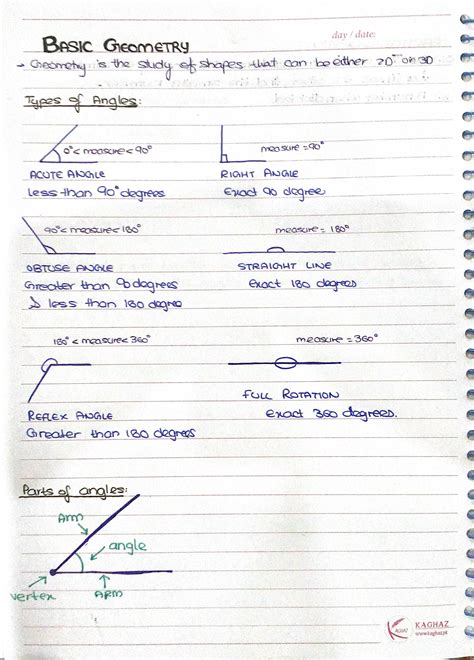 day / date:
BASIC GEOMETRY
→ Geometry is the study of shapes that can be either 2D or 3D
Types of Angles:
0°< measure < 90°
measure = 90°
ACUTE ANGLE
RIGHT ANGLE
less than 90° degrees
Exact 90 degree
90°< measure < 180°
measure = 180°
OBTUSE ANGLE
STRAIGHT LINE
Greater than 90 degrees
exact 180 degrees
& less than 180 degree
180° < measure < 360°
measure = 360°
FULL ROTATION
REFLEX ANGLE
exact 360 degrees.
Greater than 180 degrees
Parts of angles:
Arm
angle
vertex
ARM
KAGHAZ
KAGHAZ
www.kaghaz.pk